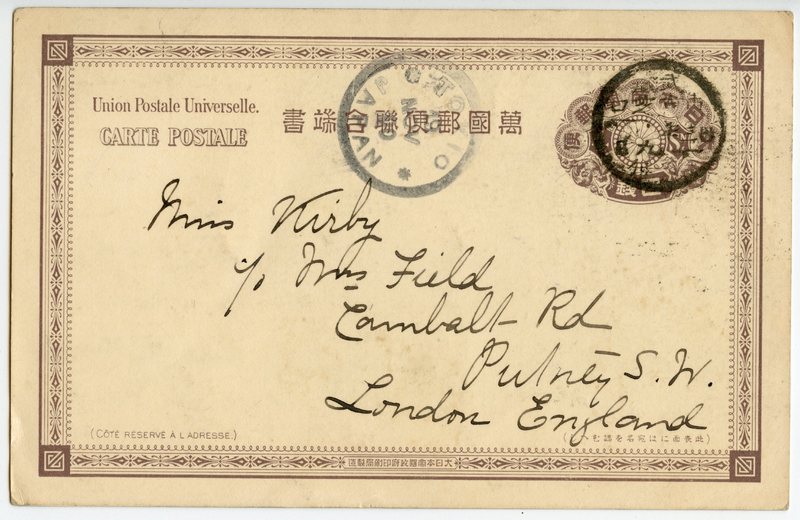 Union Postale Universelle.
CARTE POSTALE
書端合聯便郵國萬
TOKIO
JAPAN
NOV
Miss Kirby
c/o Mrs Field
Cambalt Rd
Putney S. W.
London England
(CÔTÉ RÉSERVÉ À L'ADRESSE.)
造製局刷印府政國帝本日大